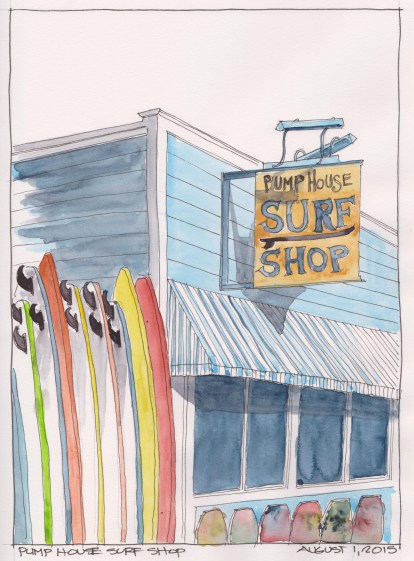 PUMP HOUSE
SURF
SHOP
PUMP HOUSE SURF SHOP
AUGUST 1, 2015